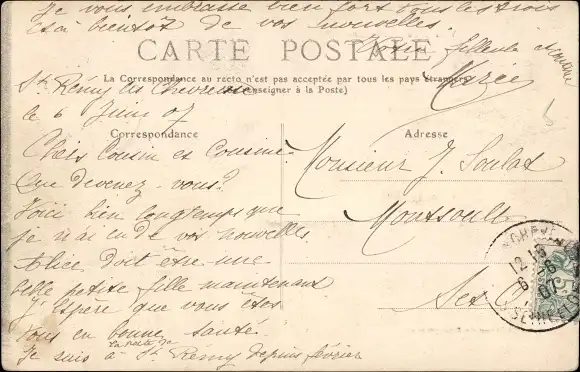 Je vous embrasse bien fort tous les trois
et à bientôt de vos nouvelles.
Votre filleule et cousine
Marie
CARTE POSTALE
La Correspondance au recto n'est pas acceptée par tous les pays étrangers
(Se renseigner à la Poste)
St Rémy les Chevreuse
le 6 Juin 07
Correspondance
Chers Cousin et Cousine
Que devenez-vous?
Voici bien longtemps que
je n'ai eu de vos nouvelles
Alice doit être une
belle petite fille maintenant
J'espère que vous êtes
tous en bonne santé.
Je suis à la poste de St Rémy depuis février
Adresse
Monsieur J. Soulas
Montsoult
S et O
CHEVREUSE
12 15
6 -6
07
SEINE-ET-O
5